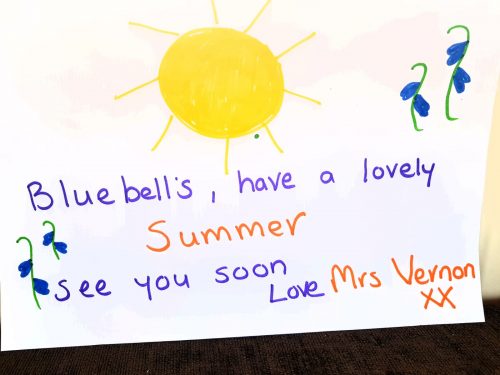 Bluebells, have a lovely
Summer
see you soon
Love Mrs Vernon
xx